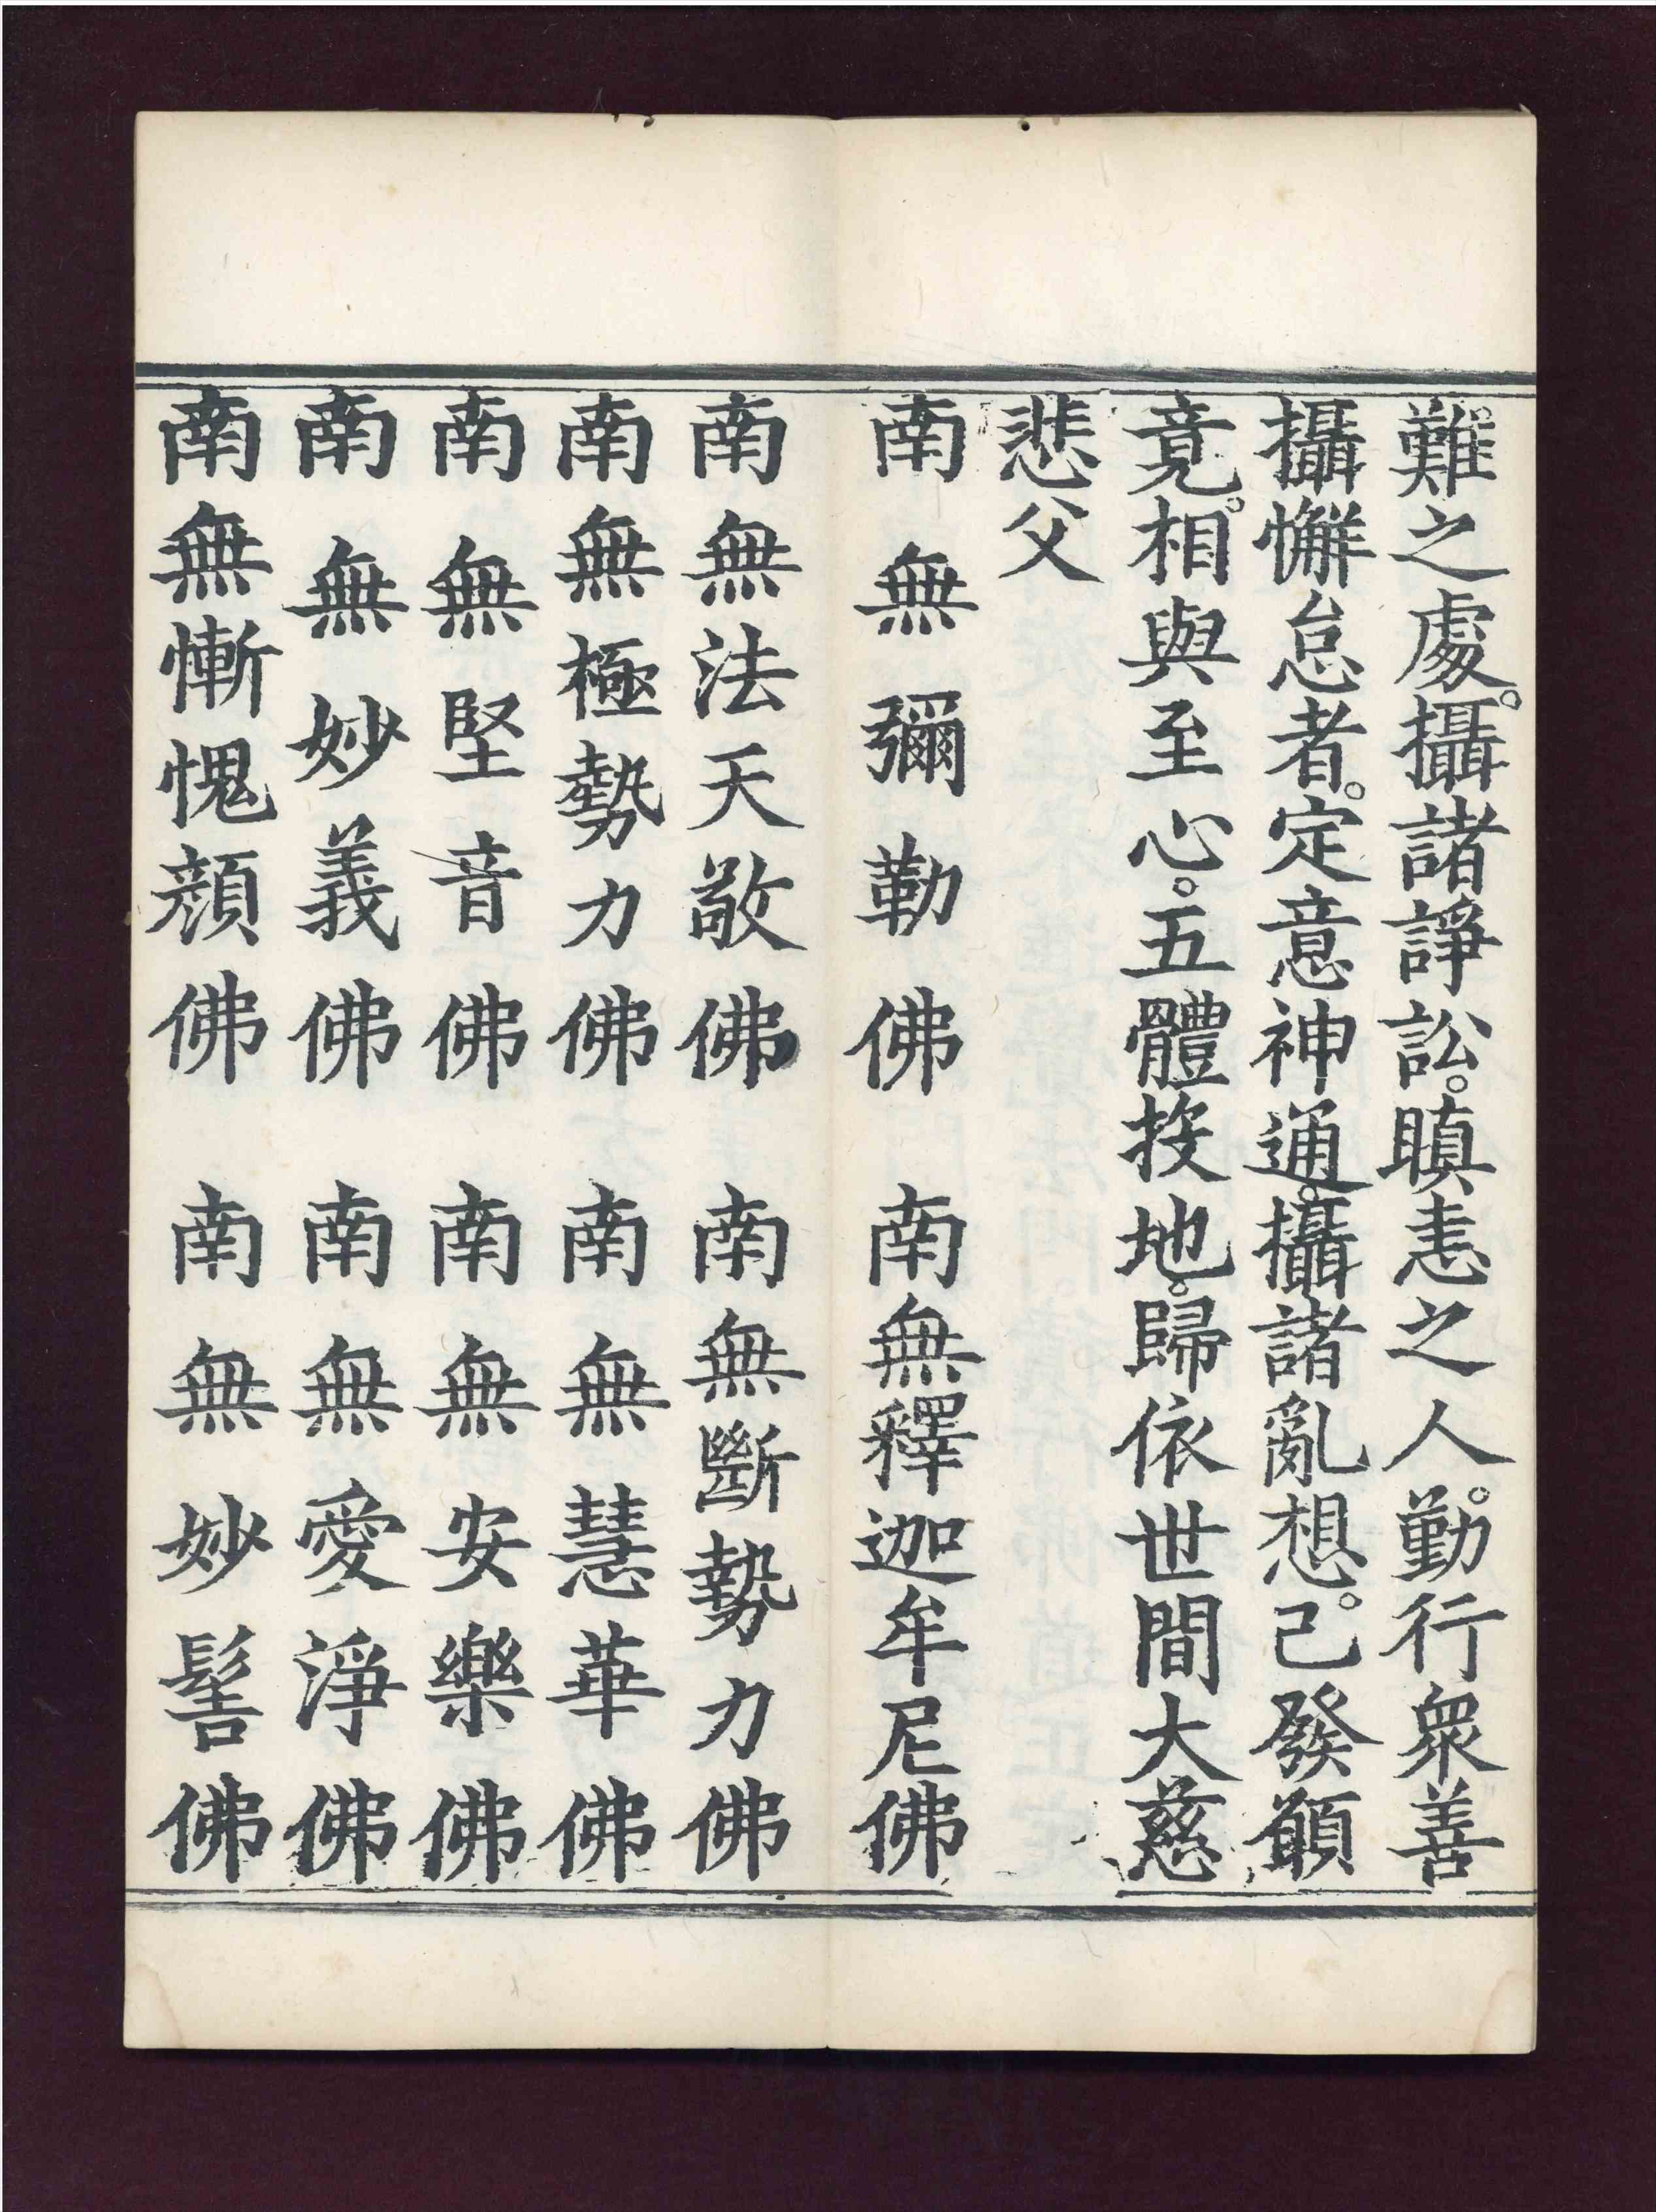 難之處。攝諸諍訟。瞋恚之人。勤行衆善
攝懈怠者。定意神通。攝諸亂想。已發願
竟。相與至心。五體投地。歸依世間大慈
悲父
南無彌勒佛　南無釋迦牟尼佛
南無法天敬佛　南無斷勢力佛
南無極勢力佛　南無慧華佛
南無堅音佛　南無安樂佛
南無妙義佛　南無愛淨佛
南無慚愧顔佛　南無妙髻佛